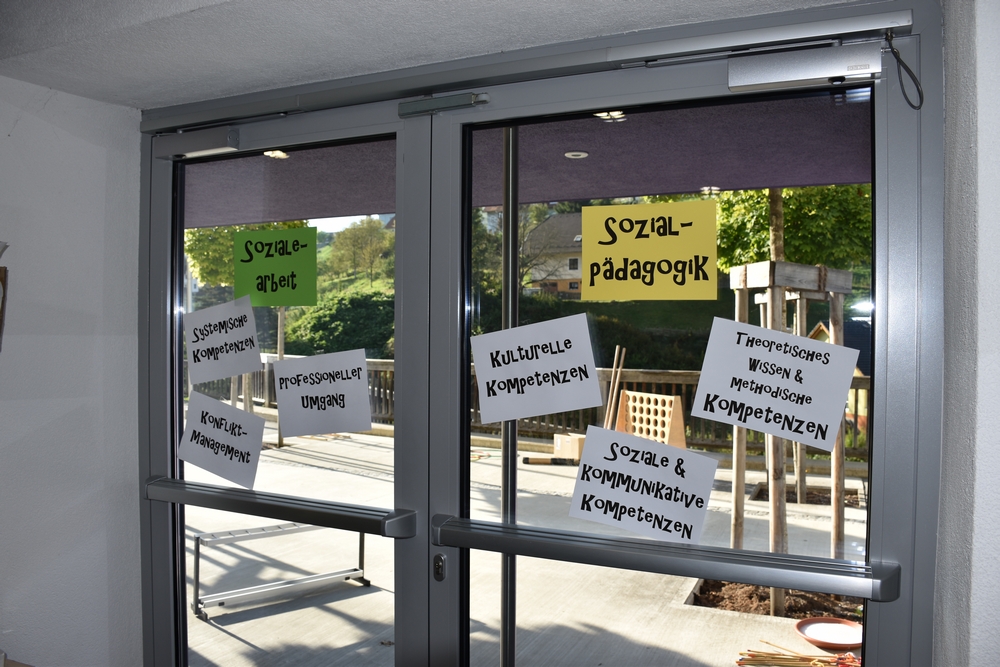 Soziale-
arbeit
Systemische
Kompetenzen
Professioneller
Umgang
Konflikt-
Management
Sozial-
pädagogik
Kulturelle
Kompetenzen
Theoretisches
Wissen &
methodische
Kompetenzen
Soziale &
kommunikative
Kompetenzen